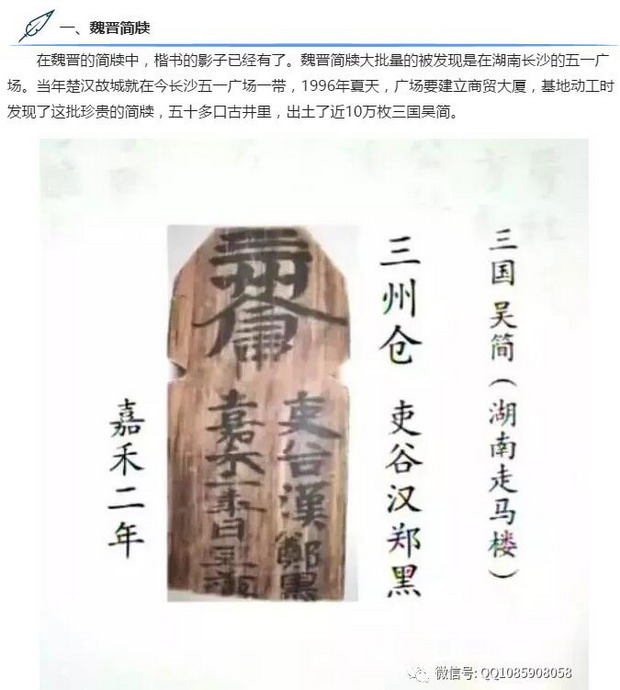 一、魏晋简牍
在魏晋的简牍中，楷书的影子已经有了。魏晋简牍大批量的被发现是在湖南长沙的五一广
场。当年楚汉故城就在今长沙五一广场一带，1996年夏天，广场要建立商贸大厦，基地动工时
发现了这批珍贵的简牍，五十多口古井里，出土了近10万枚三国吴简。
三国吴简（湖南走马楼）
三州仓 吏谷汉郑黑
三州倉
吏谷漢鄭黑
嘉禾二年
嘉禾二年
微信号: QQ1085908058